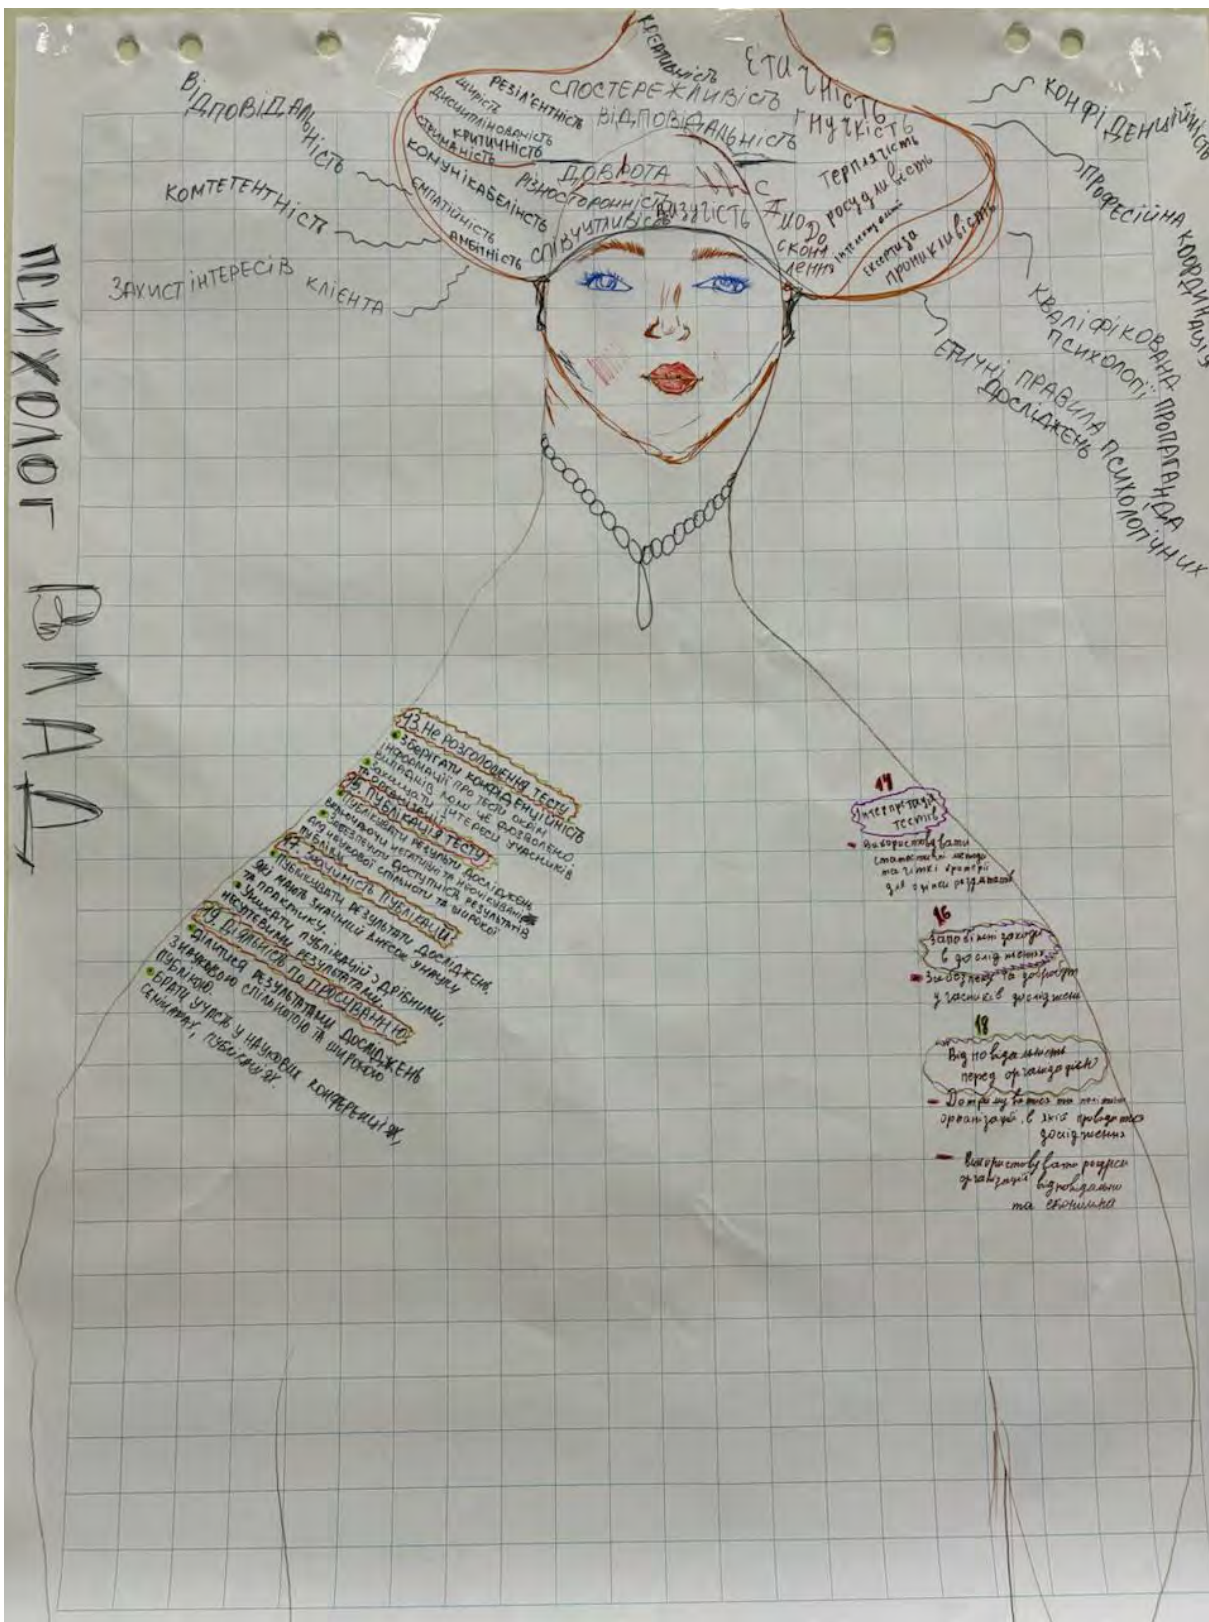 ПСИХОЛОГ ВЛАД
ВІДПОВІДАЛЬНІСТЬ
КОМТЕТЕНТНІСТЬ
ЗАХИСТ ІНТЕРЕСІВ КЛІЄНТА
КРЕАТИВНІСТЬ
ЕТИЧНІСТЬ
ЩИРІСТЬ
РЕЗІЛ'ЄНТНІСТЬ
СПОСТЕРЕЖЛИВІСТЬ
ДИСЦИПЛІНОВАНІСТЬ
ВІДПОВІДАЛЬНІСТЬ
ГНУЧКІСТЬ
СТРИМАНІСТЬ
КРИТИЧНІСТЬ
ДОБРОТА
ТЕРПЛЯЧІСТЬ
КОМУНІКАБЕЛІНСТЬ
РІЗНОСТОРОННІСТЬ
РОСУДЛИВІСТЬ
ЕМПАТІЙНІСТЬ
АМБІТНІСТЬ
СПІВЧУТЛИВІСТЬ
САМОДОСКОНАЛЕННЯ
ЕКСПЕРТИЗА
ПРОНИКЛИВІСТЬ
КОНФІДЕНЦІЙНІСТЬ
ПРОФЕСІЙНА КООРДИНАЦІЯ
КВАЛІФІКОВАНА ПРОПАГАНДА
ПСИХОЛОГІЇ
ЕТИЧНІ ПРАВИЛА ПСИХОЛОГІЧНИХ
ДОСЛІДЖЕНЬ
13. НЕ РОЗГОЛОШЕННЯ ТЕСТУ
ЗБЕРІГАТИ КОНФІДЕНЦІЙНІСТЬ
ІНФОРМАЦІЇ ПРО ТЕСТИ ОКРІМ
ВИПАДКІВ КОЛИ ЦЕ ДОЗВОЛЕНО.
ЗАХИЩАТИ ІНТЕРЕСИ УЧАСНИКІВ
ТА ОРГАНІЗАЦІЇ
15. ПУБЛІКАЦІЯ ТЕСТУ
ПУБЛІКУВАТИ РЕЗУЛЬТАТИ ДОСЛІДЖЕНЬ
ВКЛЮЧАЮЧИ НЕГАТИВНІ ТА НЕОЧІКУВАНІ
ЗАБЕЗПЕЧИТИ ДОСТУПНІСТЬ РЕЗУЛЬТАТІВ
ДЛЯ НАУКОВОЇ СПІЛЬНОТИ ТА ШИРОКОЇ
ПУБЛІКИ
17. ЗНАЧИМІСТЬ ПУБЛІКАЦІЇ
ПУБЛІКУВАТИ РЕЗУЛЬТАТИ ДОСЛІДЖЕНЬ,
ЯКІ МАЮТЬ ЗНАЧНИЙ ВНЕСОК У НАУКУ
ТА ПРАКТИКУ.
УНИКАТИ ПУБЛІКАЦІЙ З ДРІБНИМИ,
НЕСУТЄВИМИ РЕЗУЛЬТАТАМИ.
19. ДІЯЛЬНІСТЬ ПО ПРОСУВАННЮ
ДІЛИТИСЯ РЕЗУЛЬТАТАМИ ДОСЛІДЖЕНЬ
З НАУКОВОЮ СПІЛЬНОТОЮ ТА ШИРОКОЮ
ПУБЛІКОЮ.
БРАТИ УЧАСТЬ У НАУКОВИХ КОНФЕРЕНЦІЯХ,
СЕМІНАРАХ, ПУБЛІКАЦІЯХ.
14
Інтерпретація
тестів
- Використовувати
статистичні методи
та чіткі критерії
для оцінки результатів
16
Запобіжні заходи
в дослідженнях
- За безпеку та добробут
учасників досліджень
18
Відповідальність
перед організацією
- Дотримуватися та політики
організації, в якій проводиться
дослідження
- Використовувати ресурси
організації відповідально
та економна